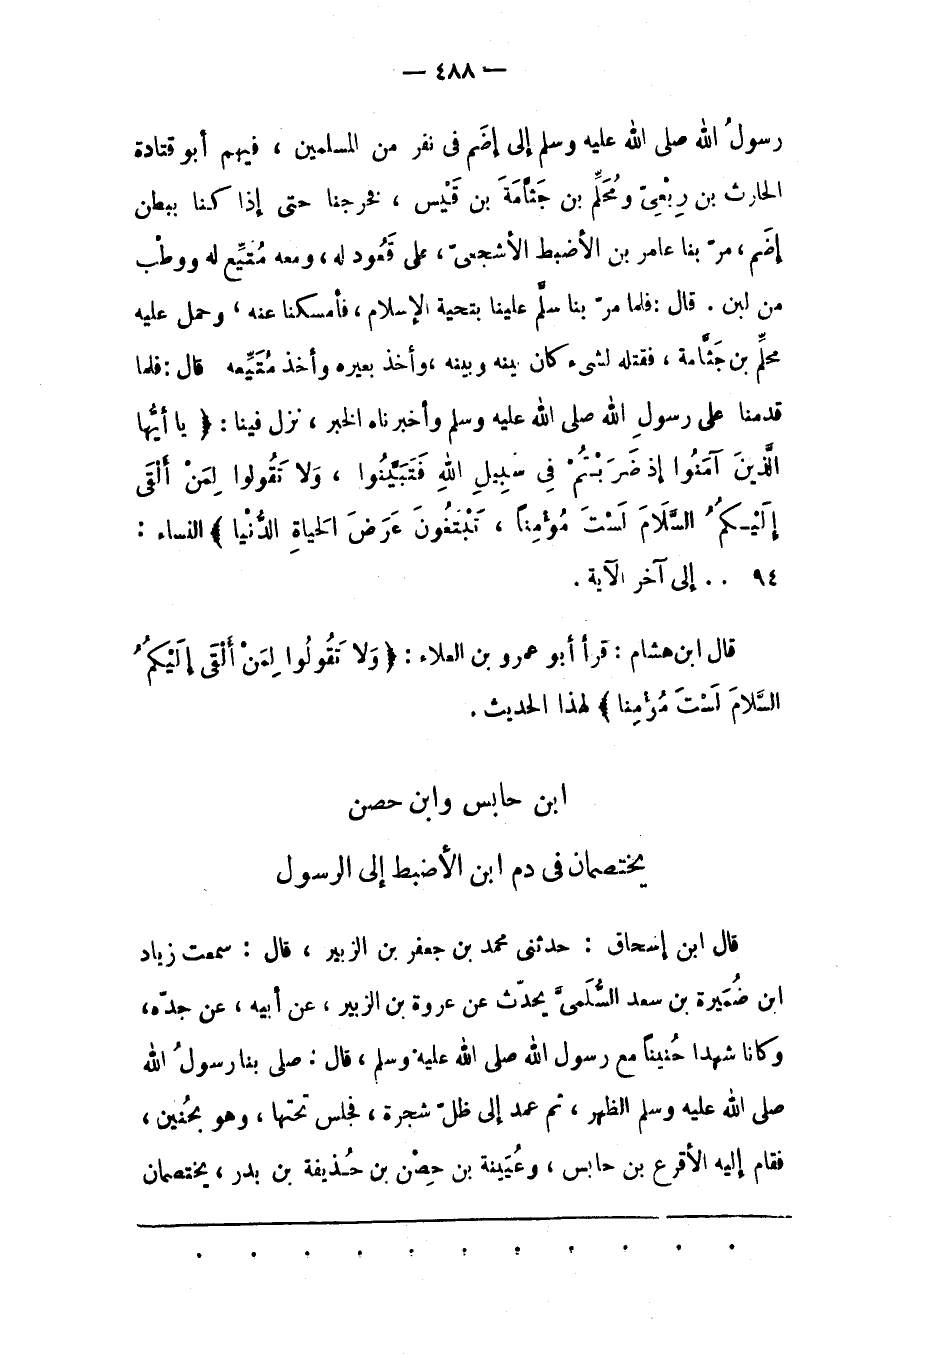 — ٤٨٨ —
رسولُ الله صلى الله عليه وسلم إلى إضَم فى نفر من المسلمين ، فيهم أبو قتادة
الحارث بن رِبْعِىّ ومُحَلِّم بن جَثَّامَةَ بن قَيْس ، فخرجنا حتى إذا كنا ببطن
إضَم ، مرّ بنا عامر بن الأضبط الأشجعىّ ، على قَعُود له ، ومعه مُتَيِّع له ووطْب
من لبن . قال : فلما مرّ بنا سلَّم علينا بتحية الإسلام ، فأمسكنا عنه ، وحمل عليه
محلِّم بن جَثَّامة ، فقتله لشىء كان بينه وبينه ، وأخذ بعيره وأخذ مُتَيِّعه قال : فلما
قدمنا على رسولِ الله صلى الله عليه وسلم وأخبرناه الخبر ، نزل فينا : ﴿ يا أيُّها
الَّذينَ آمَنُوا إذ ضَرَبْتُمْ فِى سَبِيلِ اللهِ فَتَبَيَّنُوا ، وَلا تَقُولوا لِمَنْ أَلْقَى
إلَيْكُمُ السَّلامَ لَسْتَ مُؤْمِناً ، تَبْتَغُونَ عَرَضَ الحياةِ الدُّنْيا ﴾ النساء :
٩٤ . . إلى آخر الآية .
قال ابن هشام : قرأ أبو عمرو بن العلاء : ﴿ وَلا تَقُولُوا لِمَنْ أَلْقَى إلَيْكُمُ
السَّلامَ لَسْتَ مُؤْمِنا ﴾ لهذا الحديث .
ابن حابس وابن حصن
يختصمان فى دم ابن الأضبط إلى الرسول
قال ابن إسحاق : حدثنى محمد بن جعفر بن الزبير ، قال : سمعت زياد
ابن ضُمَيرة بن سعد السُّلَمىَّ يحدّث عن عروة بن الزبير ، عن أبيه ، عن جدّه ،
وكانا شهدا حُنيناً مع رسول الله صلى الله عليه وسلم ، قال : صلى بنا رسولُ الله
صلى الله عليه وسلم الظهر ، ثم عمد إلى ظلّ شجرة ، فجلس تحتها ، وهو بحُنين ،
فقام إليه الأقرع بن حابس ، وعُيَينة بن حِصْن بن حُذيفة بن بدر ، يختصمان
. . . . . . . . . . .